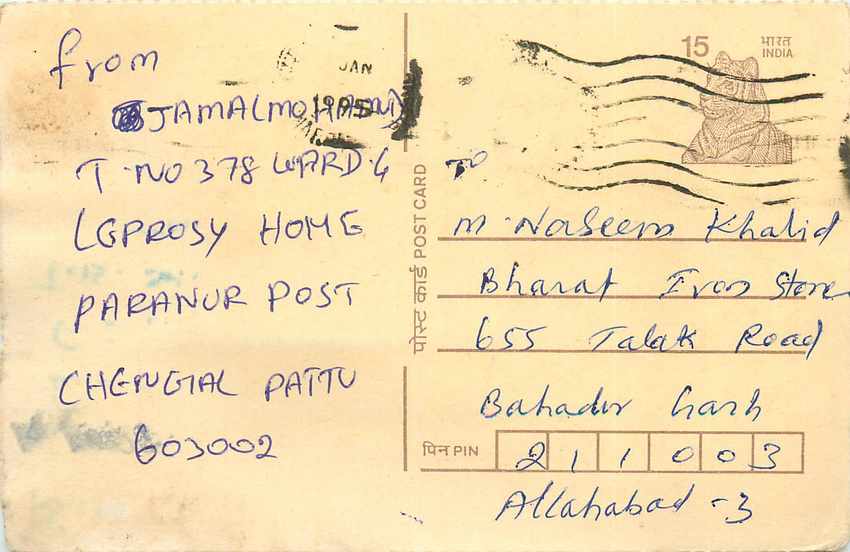 from
JAMAL MOHAMED
T. NO 378 WARD.4
LEPROSY HOME
PARANUR POST
CHENGAL PATTU
603002
JAN
1995
पोस्ट कार्ड POST CARD
15
भारत
INDIA
TO
M. Naseem Khalid
Bharat Iron Store
655 Talak Road
Bahadur Garh
पिन PIN 211003
Allahabad-3